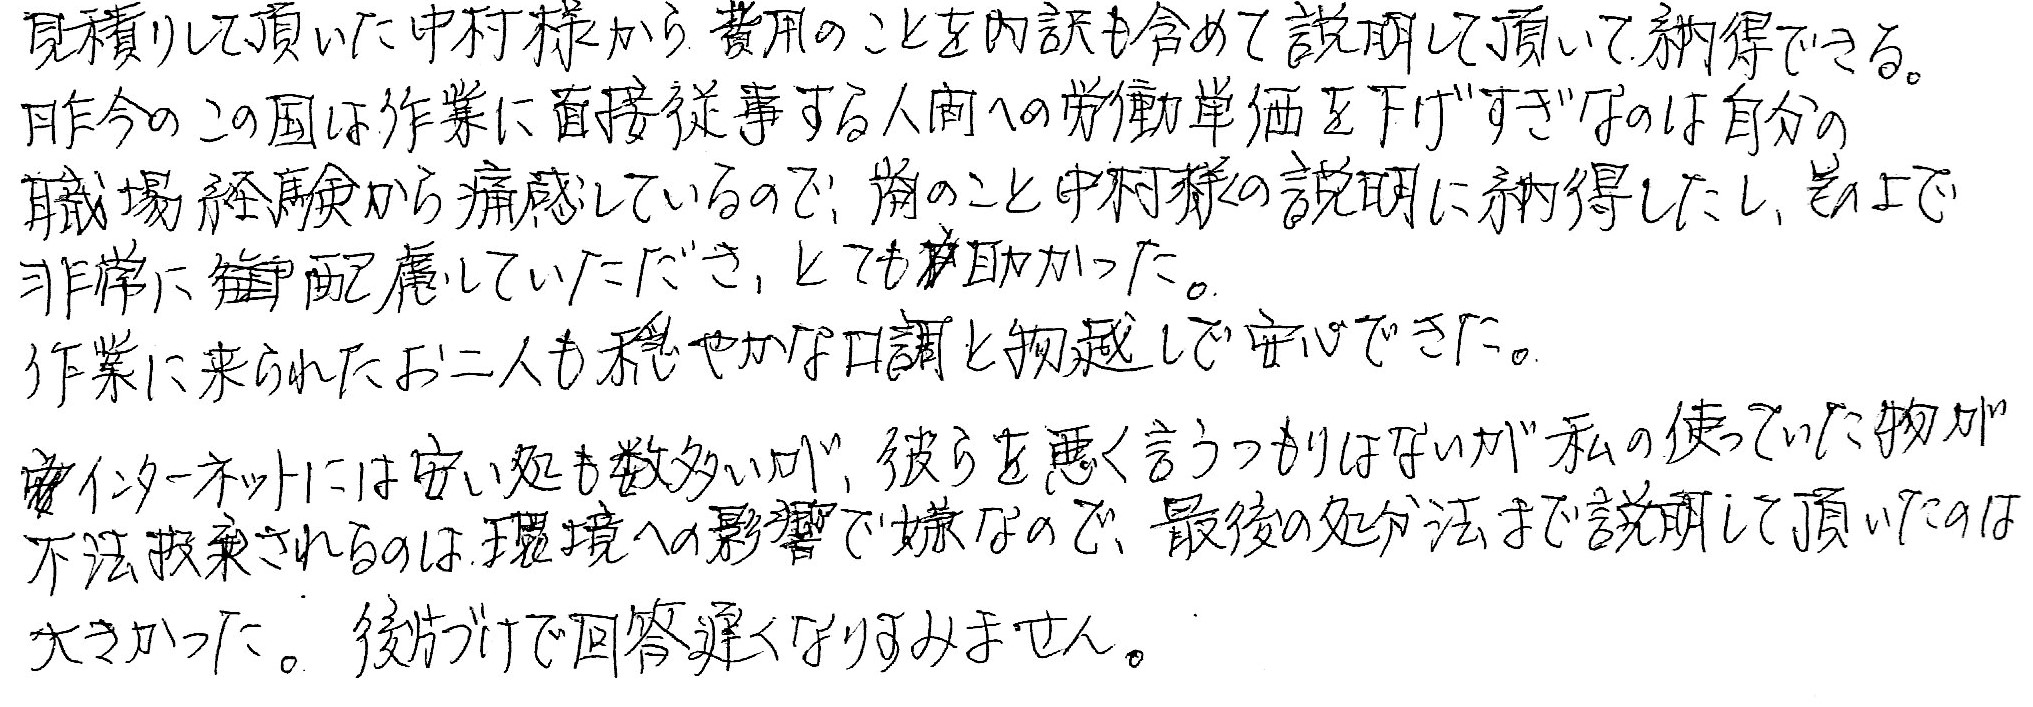 見積りして頂いた中村様から費用のことを内訳も含めて説明して頂いて納得できる。
昨今のこの国は作業に直接従事する人間への労働単価を下げすぎなのは自分の
職場経験から痛感しているので、尚のこと中村様の説明に納得したし、その上で
非常に御配慮していただき、とても助かった。
作業に来られたお二人も穏やかな口調と物越しで安心できた。
インターネットには安い処も数多いが、彼らを悪く言うつもりはないが私の使っていた物が
不法投棄されるのは環境への影響で嫌なので、最後の処分法まで説明して頂いたのは
大きかった。後片づけで回答遅くなりすみません。